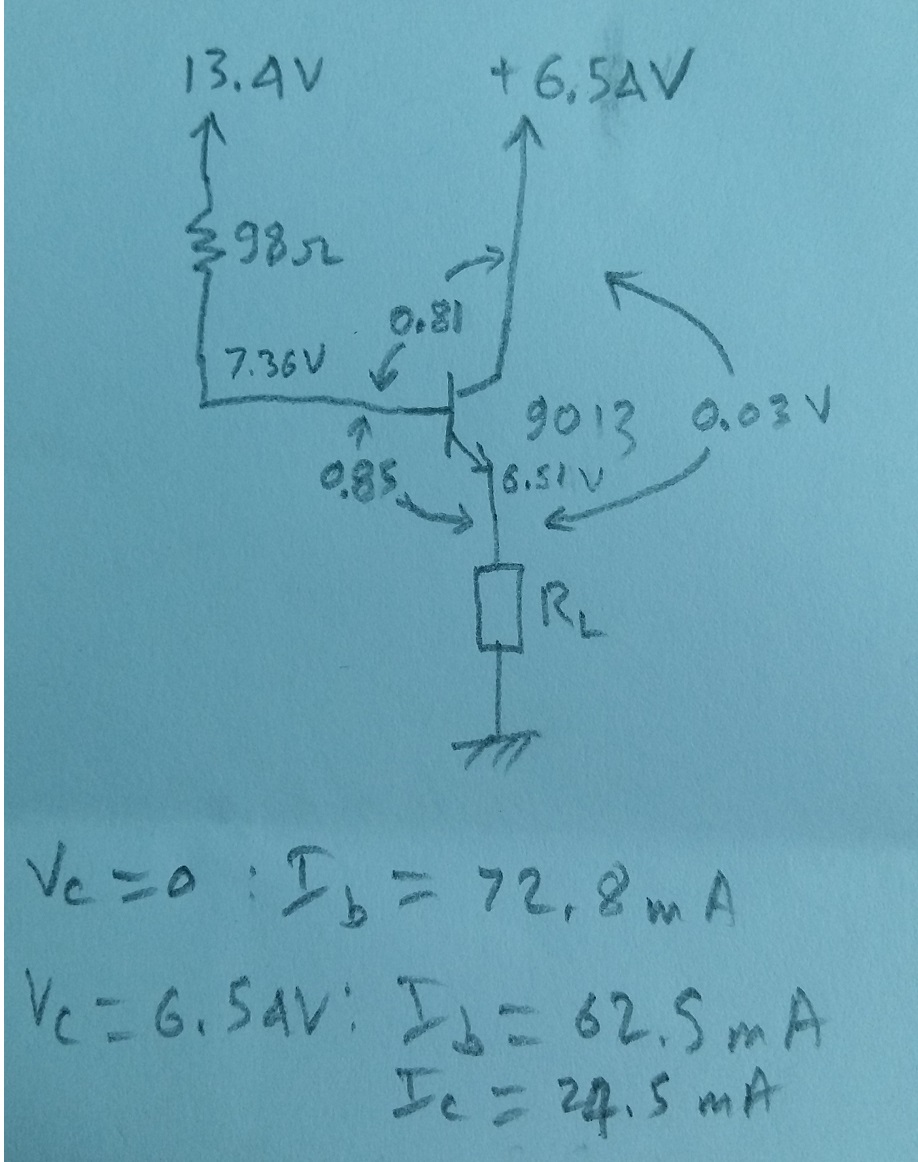 13.4V
+6.54V
98Ω
0.81
7.36V
9013
0.03V
0.85
6.51V
RL
Vc=0 : Ib = 72.8mA
Vc=6.54V: Ib= 62.5mA
Ic = 24.5 mA